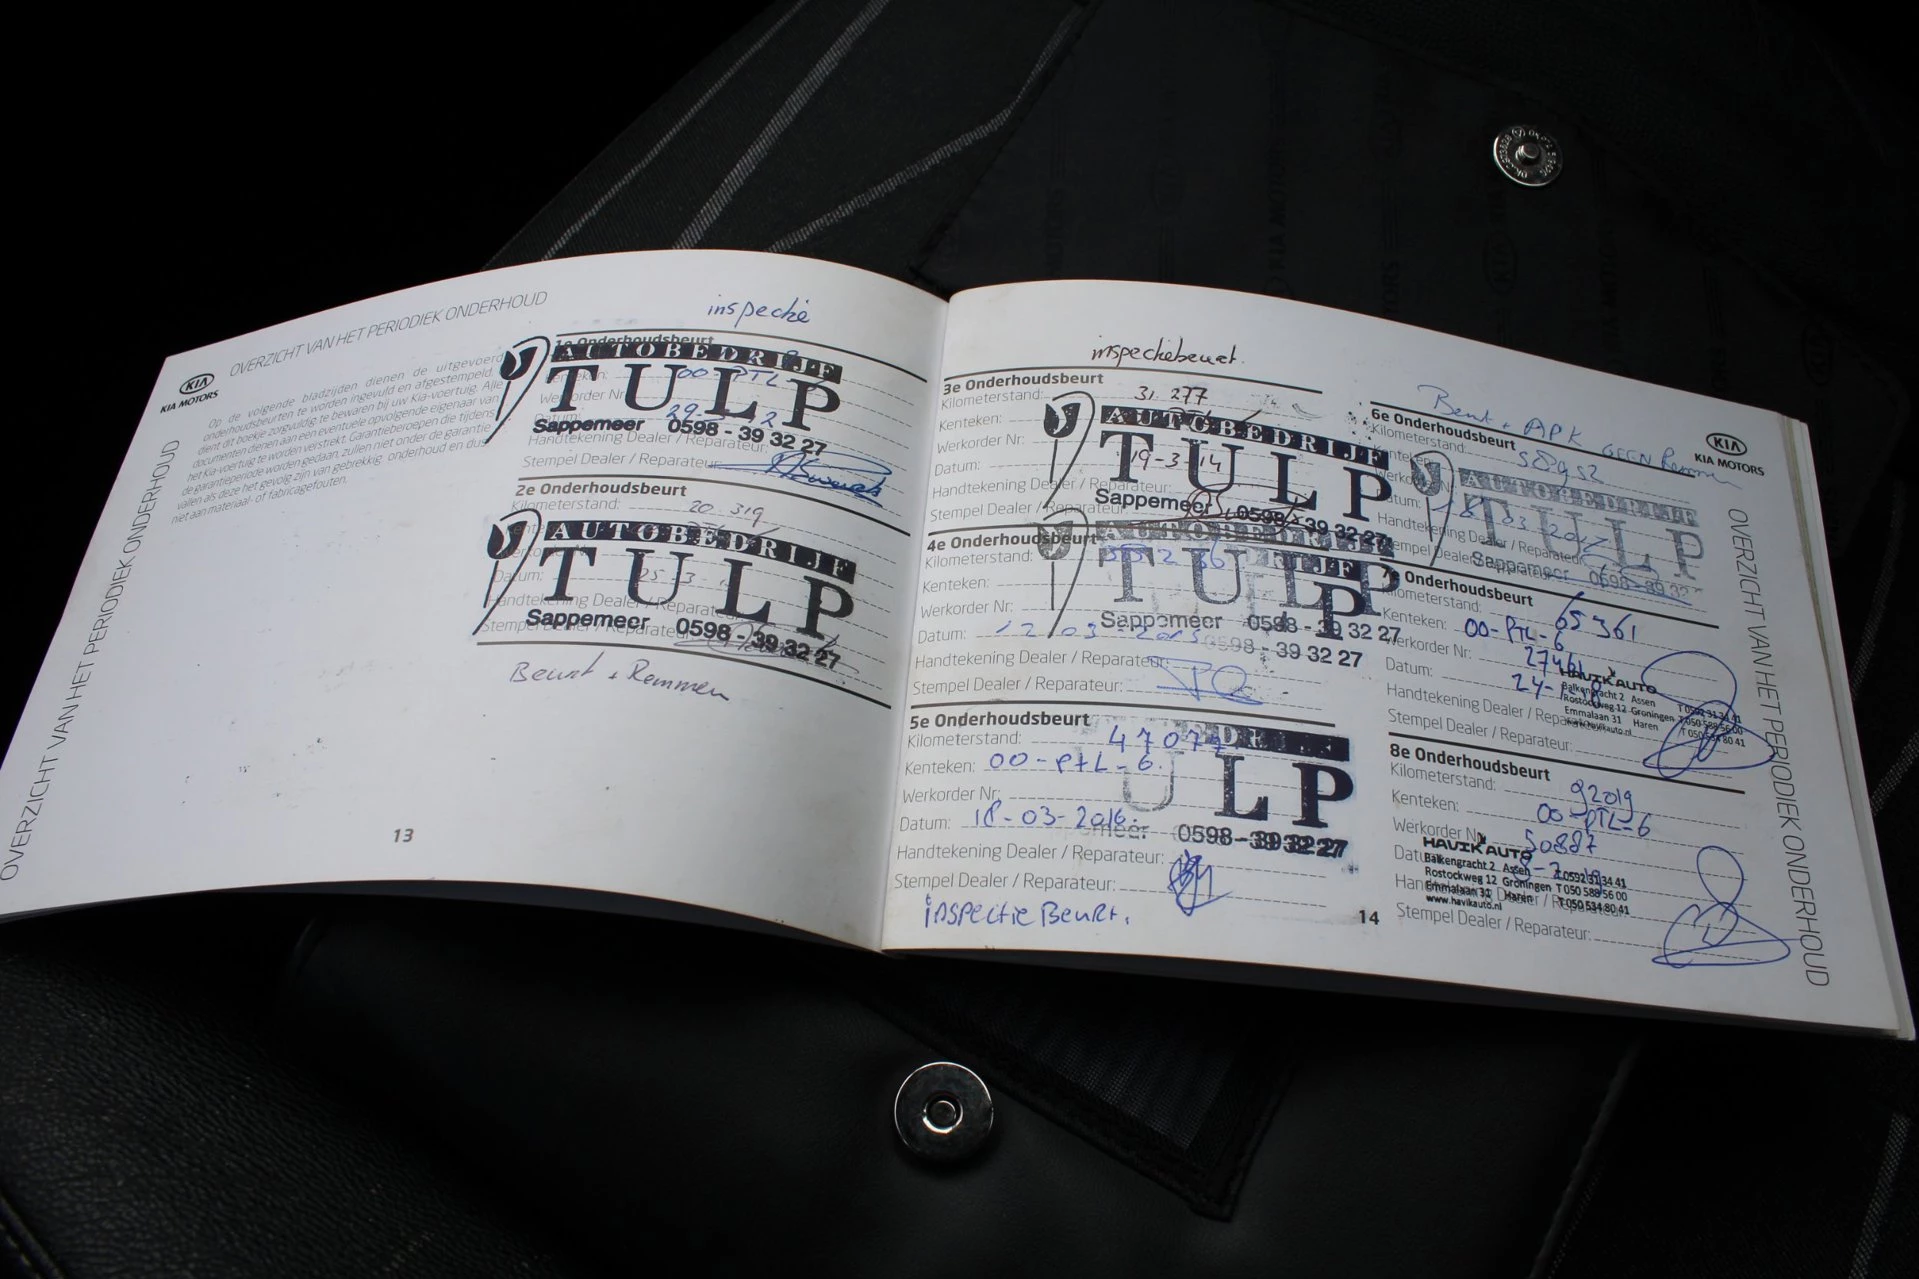 OVERZICHT VAN HET PERIODIEK ONDERHOUD
KIA
KIA MOTORS
OVERZICHT VAN HET PERIODIEK ONDERHOUD
Op de volgende bladzijden dienen de uitgevoerd
onderhoudsbeurten te worden ingevuld en afgestempeld.
dient dit boekje zorgvuldig te bewaren bij uw Kia-voertuig. Alle
documenten dienen aan een eventuele opvolgende eigenaar van
het Kia-voertuig te worden verstrekt. Garantieberoepen die tijdens
de garantieperiode worden gedaan, zullen niet onder de garantie
vallen als deze het gevolg zijn van gebrekkig onderhoud en dus
niet aan materiaal- of fabricagefouten.
inspectie
1e Onderhoudsbeurt
AUTOBEDRIJF
00-PTL
TULP
Werkorder Nr
Datum:
Sappemeer 0598 - 39 32 27
Handtekening Dealer / Reparateur:
Stempel Dealer / Reparateur:
2e Onderhoudsbeurt
Kilometerstand: 20 319
AUTOBEDRIJF
TULP
Datum:
Handtekening Dealer / Reparateur
Sappemeer 0598 - 39 32 27
Stempel Dealer / Reparateur
Beurt + Remmen
13
inspectiebeurt.
3e Onderhoudsbeurt
Kilometerstand: 31 277
Kenteken:
AUTOBEDRIJF
Werkorder Nr:
TULP
Datum: 19-3-14
Handtekening Dealer / Reparateur:
Sappemeer 0598 - 39 32 27
Stempel Dealer / Reparateur
4e Onderhoudsbeurt
Kilometerstand:
Kenteken:
TULP
Werkorder Nr:
Sappemeer 0598 - 39 32 27
Datum: 12-03-2015
0598 - 39 32 27
Handtekening Dealer / Reparateur:
Stempel Dealer / Reparateur:
5e Onderhoudsbeurt
Kilometerstand: 47077
Kenteken: 00-PTL-6
Werkorder Nr:
ULP
Datum: 18-03-2016
0598-39 32 27
Handtekening Dealer / Reparateur:
Stempel Dealer / Reparateur:
inspectie Beurt.
14
Beurt + APK GEEN Remmen
6e Onderhoudsbeurt
Kilometerstand: 58952
AUTOBEDRIJF
TULP
Handtekening Dealer / Reparateur
Sappemeer 0598-39 32
Onderhoudsbeurt
Kilometerstand: 65361
Kenteken: 00-PTL-6
Werkorder Nr:
Datum:
HAVIK AUTO
Balkengracht 2 Assen T 0592 31 34 41
Rostockweg 12 Groningen T 050 588 56 00
Emmalaan 31 Haren T 050 534 80 41
Handtekening Dealer / Reparateur
Stempel Dealer / Reparateur:
8e Onderhoudsbeurt
Kilometerstand: 92019
Kenteken: 00-PTL-6
Werkorder Nr 50887
HAVIK AUTO
Balkengracht 2 Assen T 0592 31 34 41
Rostockweg 12 Groningen T 050 588 56 00
Emmalaan 31 Haren T 050 534 80 41
www.havikauto.nl
Stempel Dealer / Reparateur:
KIA
KIA MOTORS
OVERZICHT VAN HET PERIODIEK ONDERHOUD